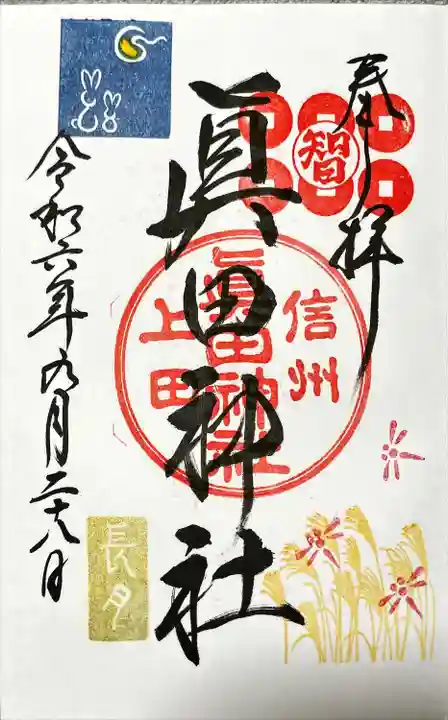 奉拝
智
眞田神社
信州
眞田神社
上田
令和六年九月二十八日
長月